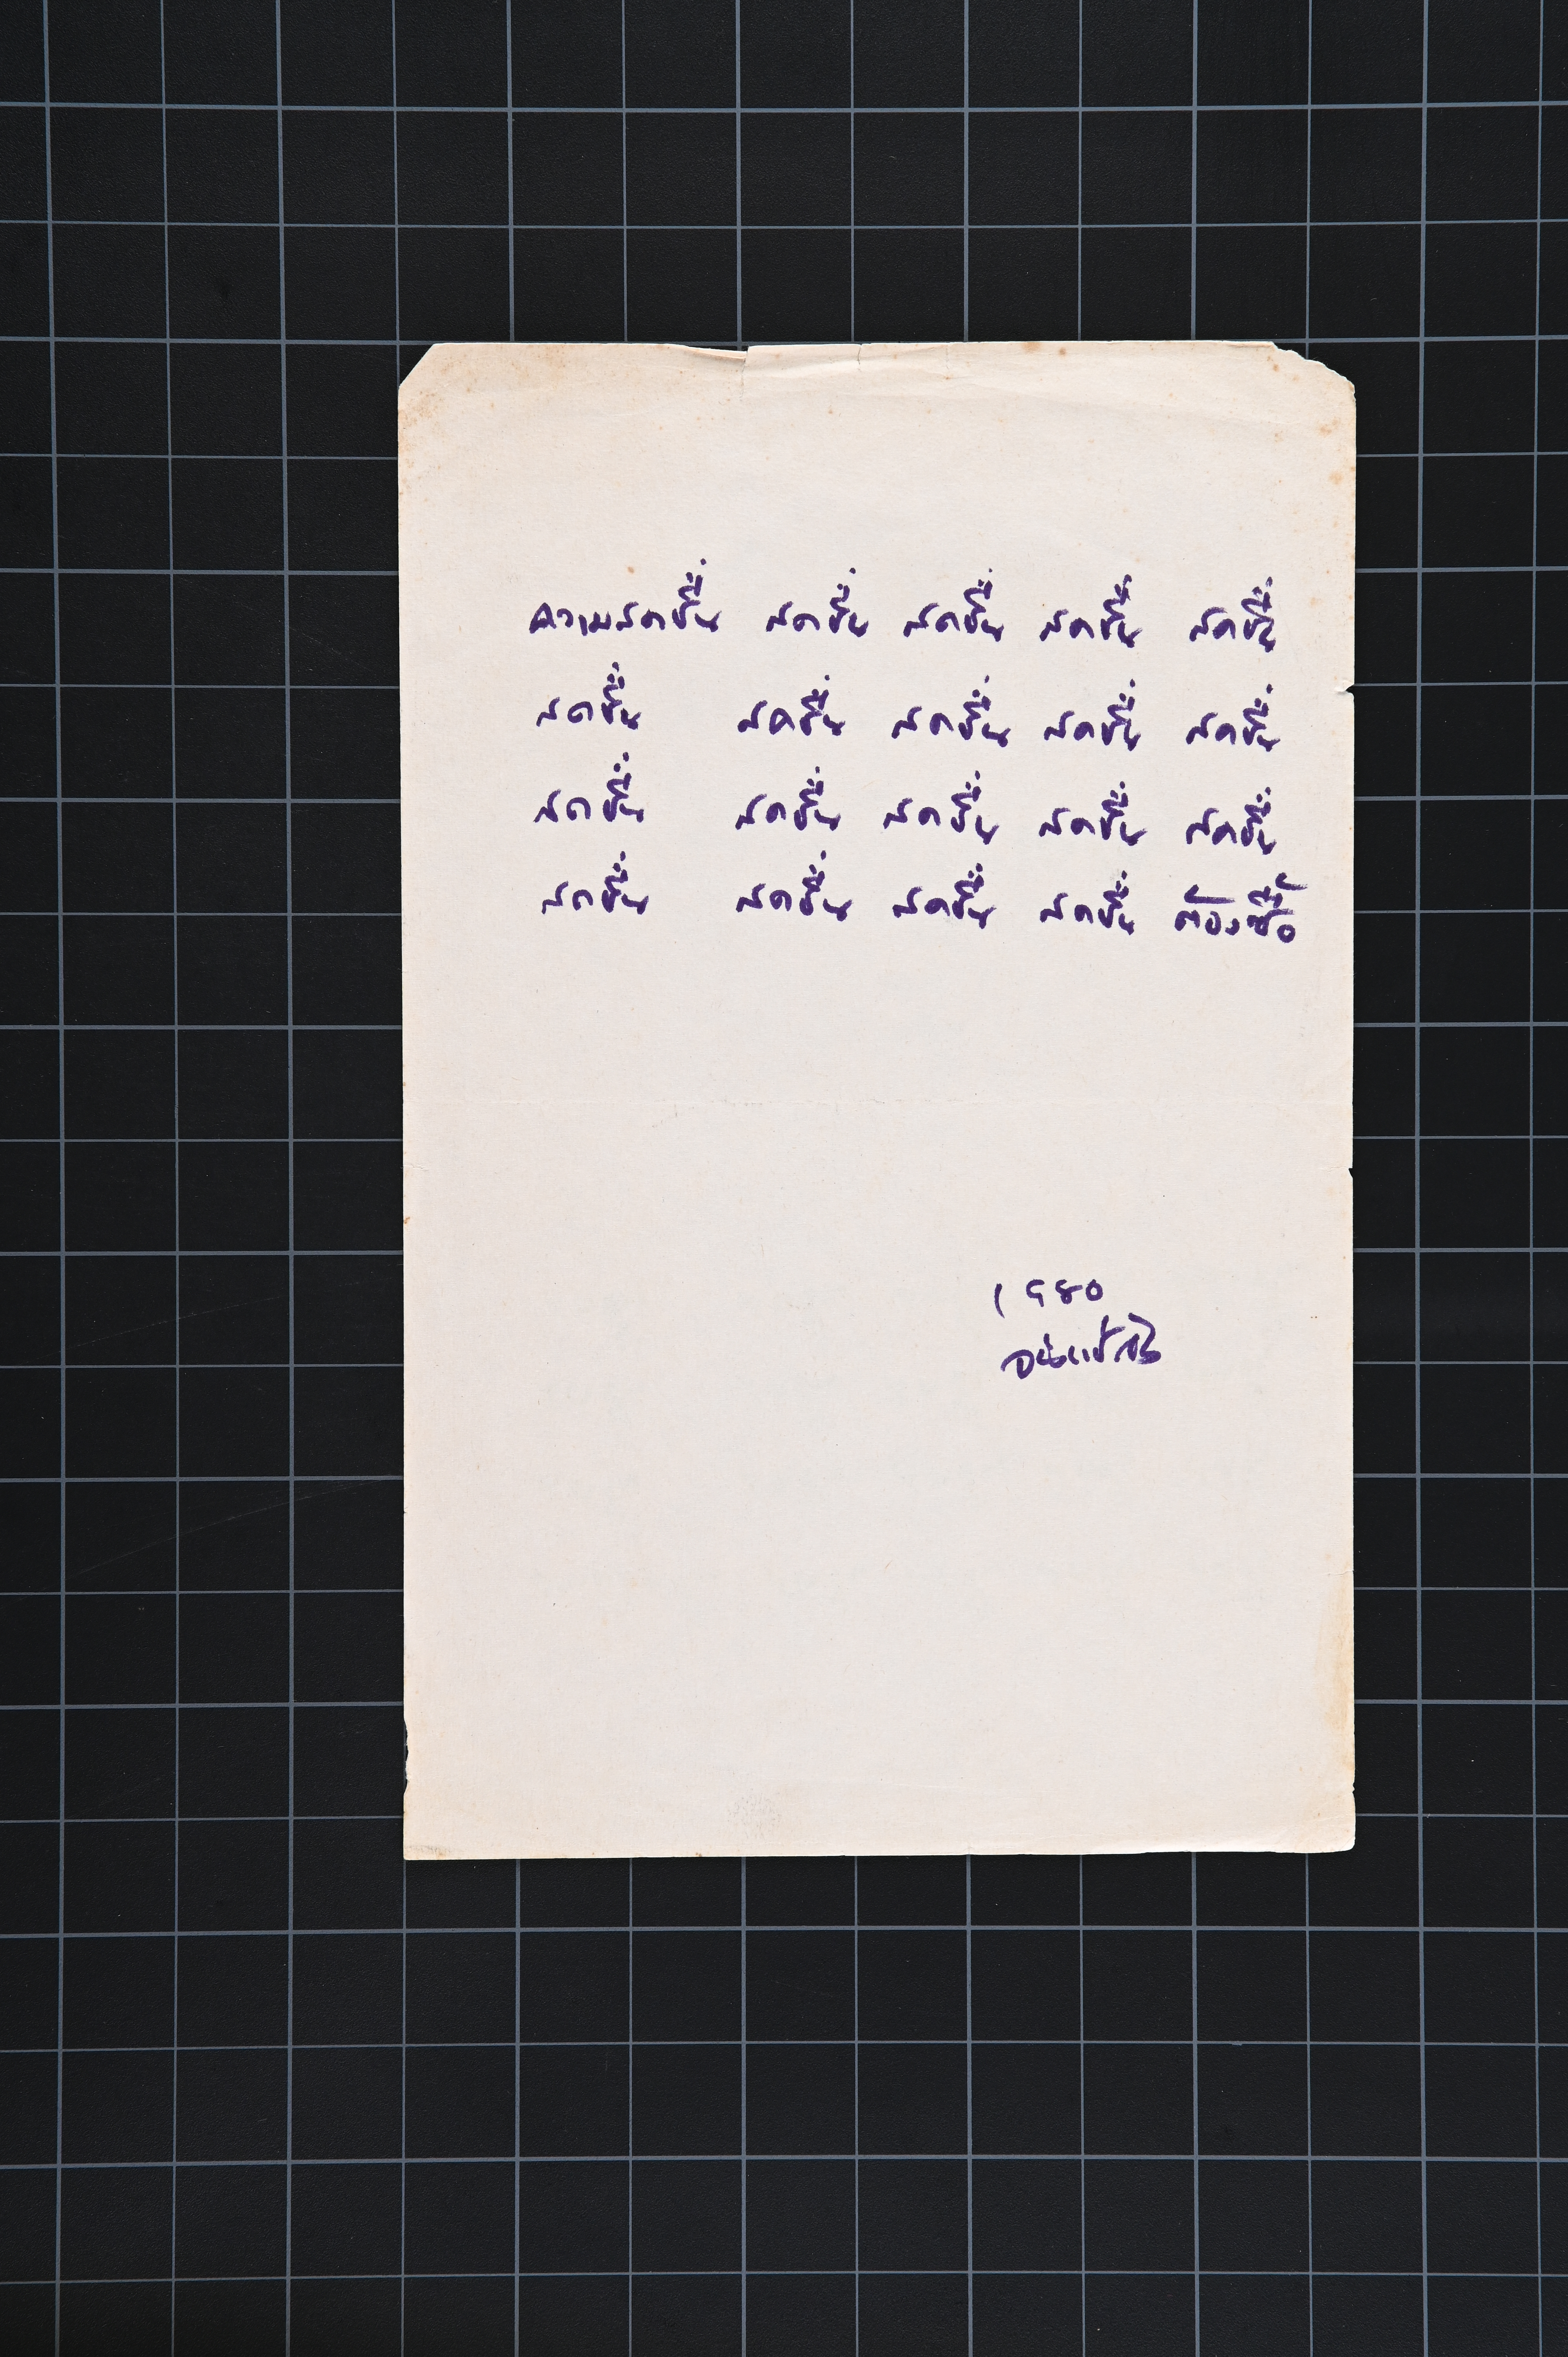 ความสดชื่น สดชื่น สดชื่น สดชื่น สดชื่น
สดชื่น สดชื่น สดชื่น สดชื่น สดชื่น
สดชื่น สดชื่น สดชื่น สดชื่น สดชื่น
สดชื่น สดชื่น สดชื่น สดชื่น ต้องซื้อ
1980
จ่างแซ่ตั้ง